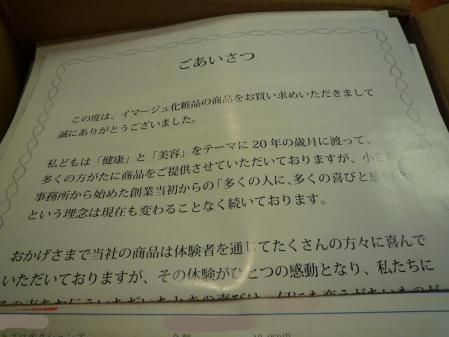 ごあいさつ
この度は、イマージュ化粧品の商品をお買い求めいただきまして
誠にありがとうございました。
私どもは「健康」と「美容」をテーマに20年の歳月に渡って、
多くの方がたに商品をご提供させていただいておりますが、小さな
事務所から始めた創業当初からの「多くの人に、多くの喜びと感動を
という理念は現在も変わることなく続いております。
おかげさまで当社の商品は体験者を通じてたくさんの方々に喜んで
いただいておりますが、その体験がひとつの感動となり、私たちに